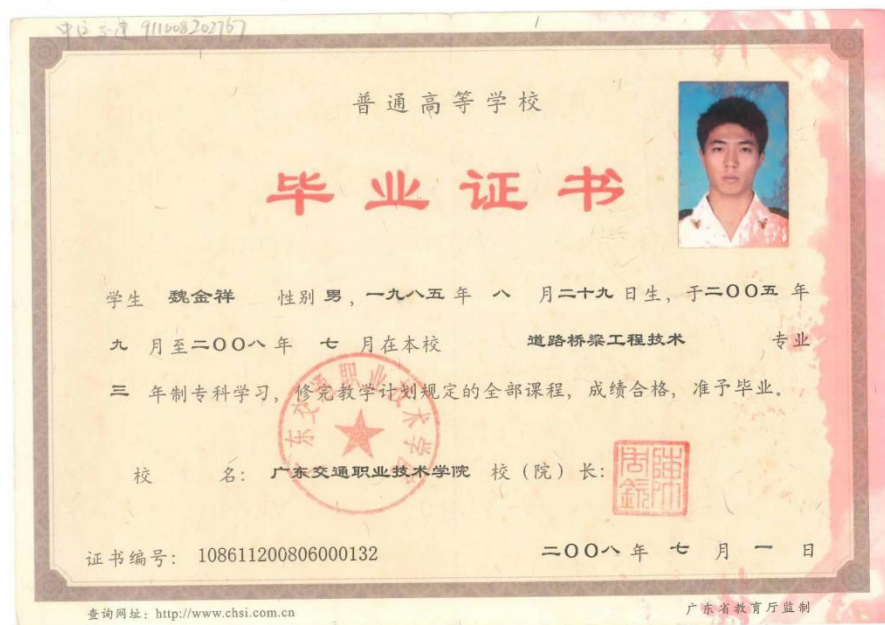 911008202767
普通高等学校
毕业证书
学生 魏金祥 性别 男，一九八五 年 八 月 二十九 日生，于 二〇〇五 年
九 月至 二〇〇八 年 七 月在本校 道路桥梁工程技术 专业
三 年制专科学习，修完教学计划规定的全部课程，成绩合格，准予毕业。
广东交通职业技术学院
校 名：广东交通职业技术学院 校（院）长：
证书编号：108611200806000132 二〇〇八 年 七 月 一 日
查询网址：http://www.chsi.com.cn 广东省教育厅监制